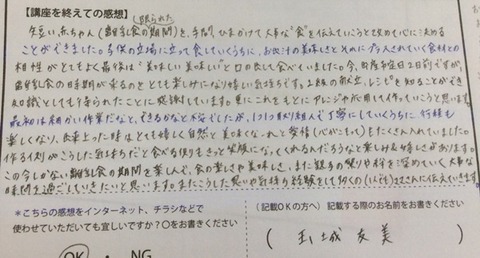 【講座を終えての感想】
(限られた)
短い赤ちゃん(離乳食の期間)を、手間ひまかけて大事な"食"を伝えていこうと改めて心に決める
ことができました。子供の立場に立って食していくうちに、お出汁の美味しさとそれにプラスされていく食材との
相性がとてもよく最後は"美味しい美味しい"と口に出して食べていました。今、出産予定日2日前ですが、
離乳食の時期が来るのをとても楽しみになり嬉しい気持ちです。2級の献立、レシピを知ることができ
知識としても得られたことに感謝しています。更にこれをもとにアレンジや応用して作っていこうと思います。
最初は細かい作業だなと、できるかなと不安でしたが、1つ1つ取り組んで丁寧にしていくうちに、行程も
楽しくなり、出来上った時はとても嬉しく自然と美味くなれと愛情(しがんもって)もたくさん入れていました。
作る側がこうした気持ちだと食べる側もきっと笑顔になってくれるんだろうなと楽しみな嬉しさがあります。
この今しかない離乳食の期間を楽しんで、食の楽しさや美味しさ、また親子の関りや絆を深めていく大事な
時間を過ごしていきたいと思います。またこうした思いや気持ち経験をして多くの(人)にさんに伝えていきます。
*こちらの感想をインターネット、チラシなどで
使わせていただいても宜しいですか?○をお書きください
OK ・ NG
(記載OKの方へ) 記載する際のお名前をお書きください
( 玉城 友美